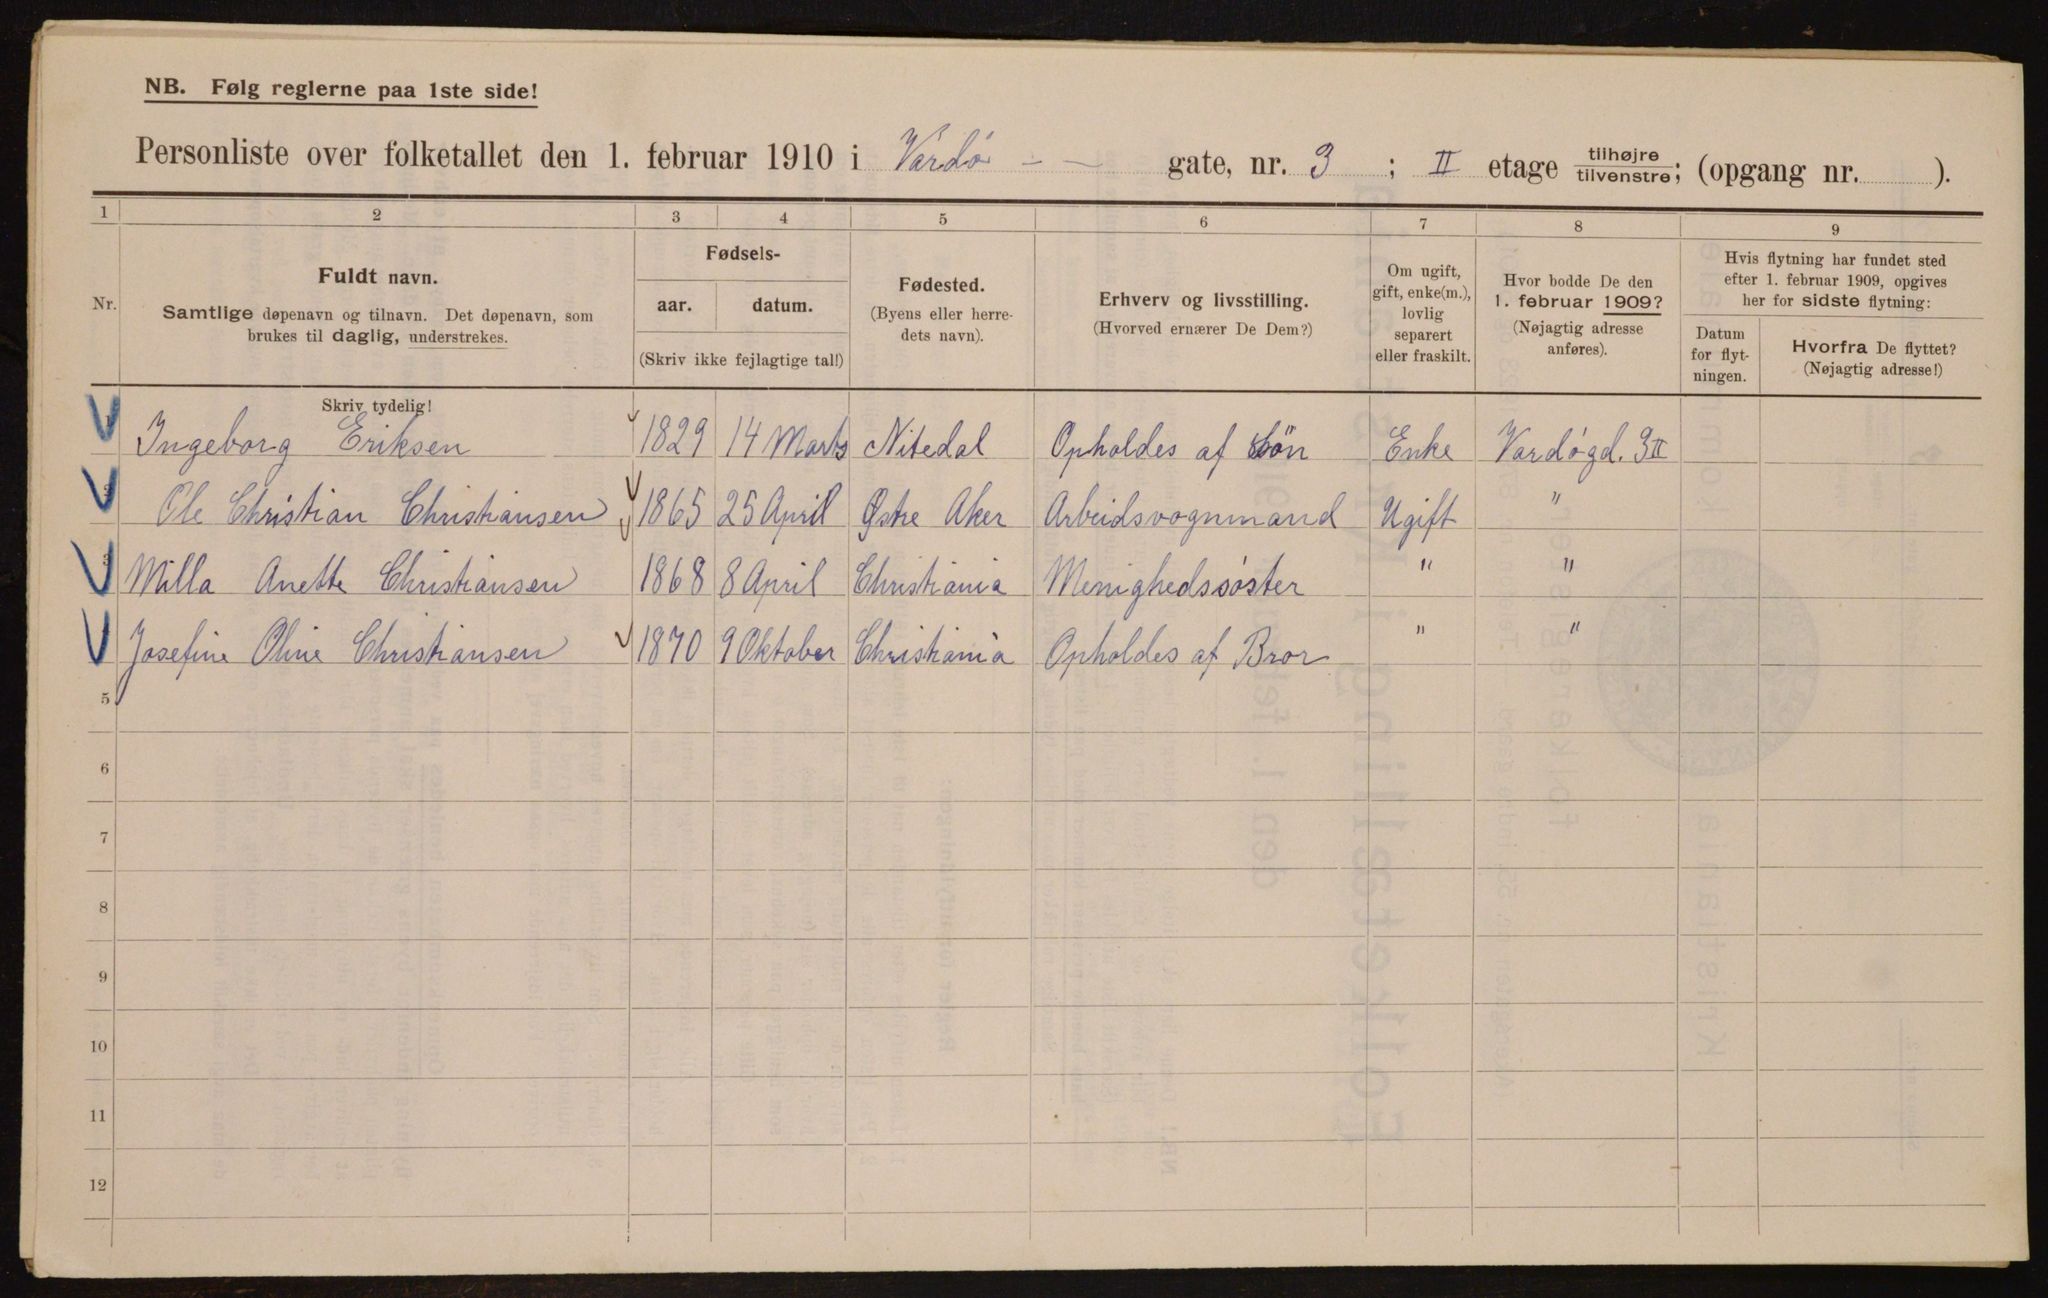 NB. Følg reglerne paa 1ste side!
Personliste over folketallet den 1. februar 1910 i Vardø - - gate, nr. 3 ; II etage tilhøjre tilvenstre; (opgang nr. ).
1 2 3 4 5 6 7 8 9
Nr.
Fuldt navn.
Samtlige døpenavn og tilnavn. Det døpenavn, som
brukes til daglig, understrekes.
Skriv tydelig!
Fødsels-
aar. datum.
(Skriv ikke fejlagtige tal!)
Fødested.
(Byens eller herre-
dets navn).
Erhverv og livsstilling.
(Hvorved ernærer De Dem?)
Om ugift,
gift, enke(m.),
lovlig
separert
eller fraskilt.
Hvor bodde De den
1. februar 1909?
(Nøjagtig adresse
anføres).
Hvis flytning har fundet sted
efter 1. februar 1909, opgives
her for sidste flytning:
Datum
for flyt-
ningen.
Hvorfra De flyttet?
(Nøjagtig adresse!)
1 Ingeborg Eriksen 1829 14 Marts Nitedal Opholdes af Søn Enke Vardøgd. 3 II
2 Ole Christian Christiansen 1865 25 April Østre Aker Arbeidsvognmand Ugift "
3 Milla Anette Christiansen 1868 8 April Christiania Menighedssøster " "
Josefine Oline Christiansen 1870 9 Oktober Christiania Opholdes af Bror " "
5
6
7
8
9
10
11
12